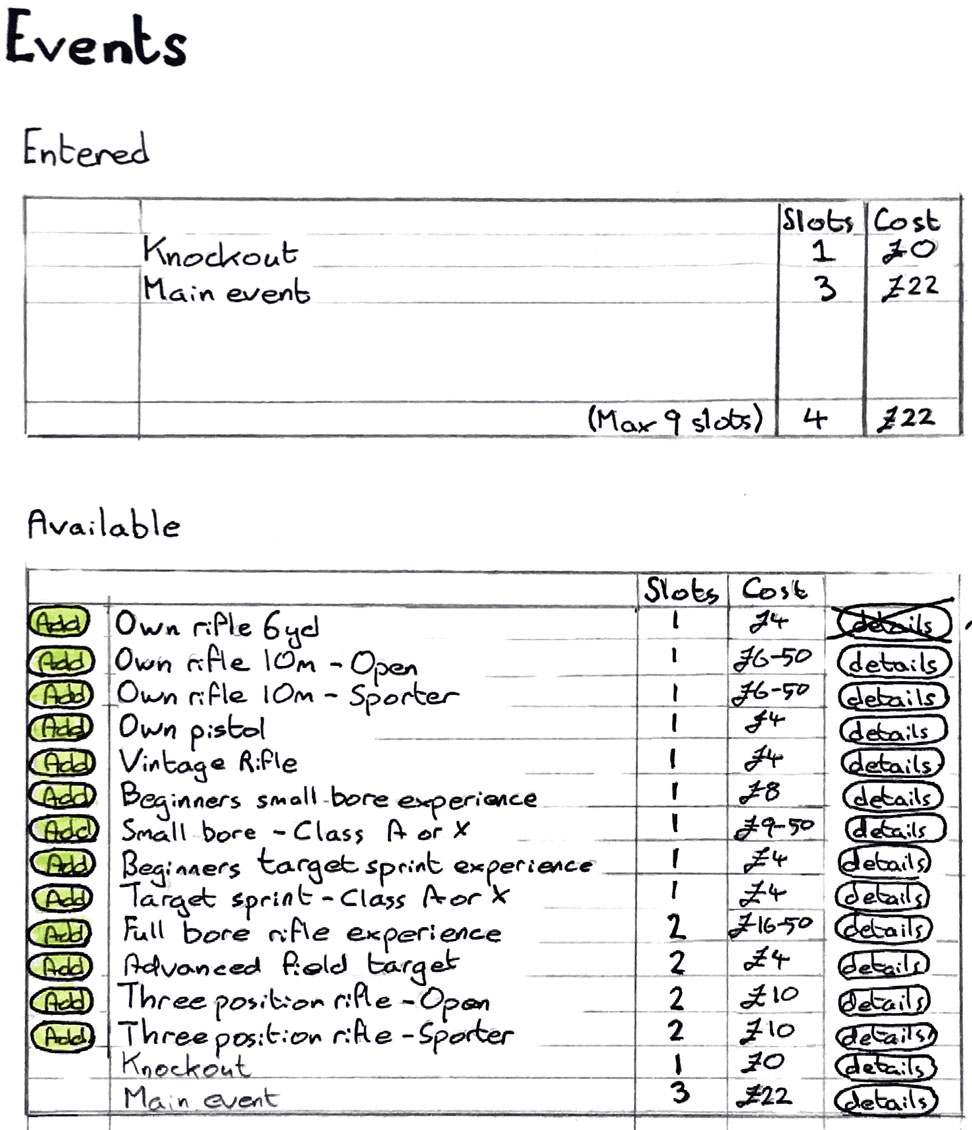 Events
Entered
Slots Cost
Knockout 1 £0
Main event 3 £22
(Max 9 slots) 4 £22
Available
Slots Cost
Add Own rifle 6yd 1 £4 details
Add Own rifle 10m - Open 1 £6-50 details
Add Own rifle 10m - Sporter 1 £6-50 details
Add Own pistol 1 £4 details
Add Vintage Rifle 1 £4 details
Add Beginners small bore experience 1 £8 details
Add Small bore - Class A or X 1 £9-50 details
Add Beginners target sprint experience 1 £4 details
Add Target sprint - Class A or X 1 £4 details
Add Full bore rifle experience 2 £16-50 details
Add Advanced field target 2 £4 details
Add Three position rifle - Open 2 £10 details
Add Three position rifle - Sporter 2 £10 details
Knockout 1 £0 details
Main event 3 £22 details